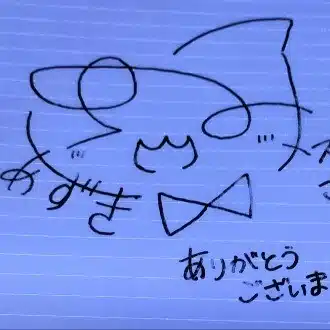 あずき
ありがとう
ございま